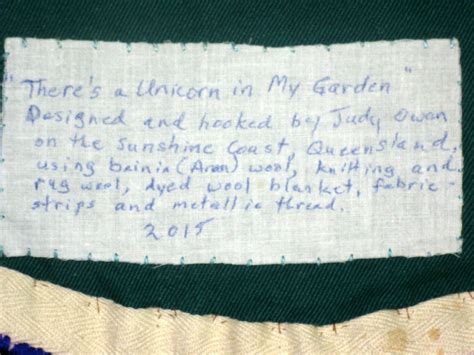 "There's a Unicorn in My Garden"
Designed and hooked by Judy Owen
on the Sunshine Coast, Queensland,
using bainin (Aran) wool, knitting and
rug wool, dyed wool blanket, fabric
strips and metallic thread.
2015